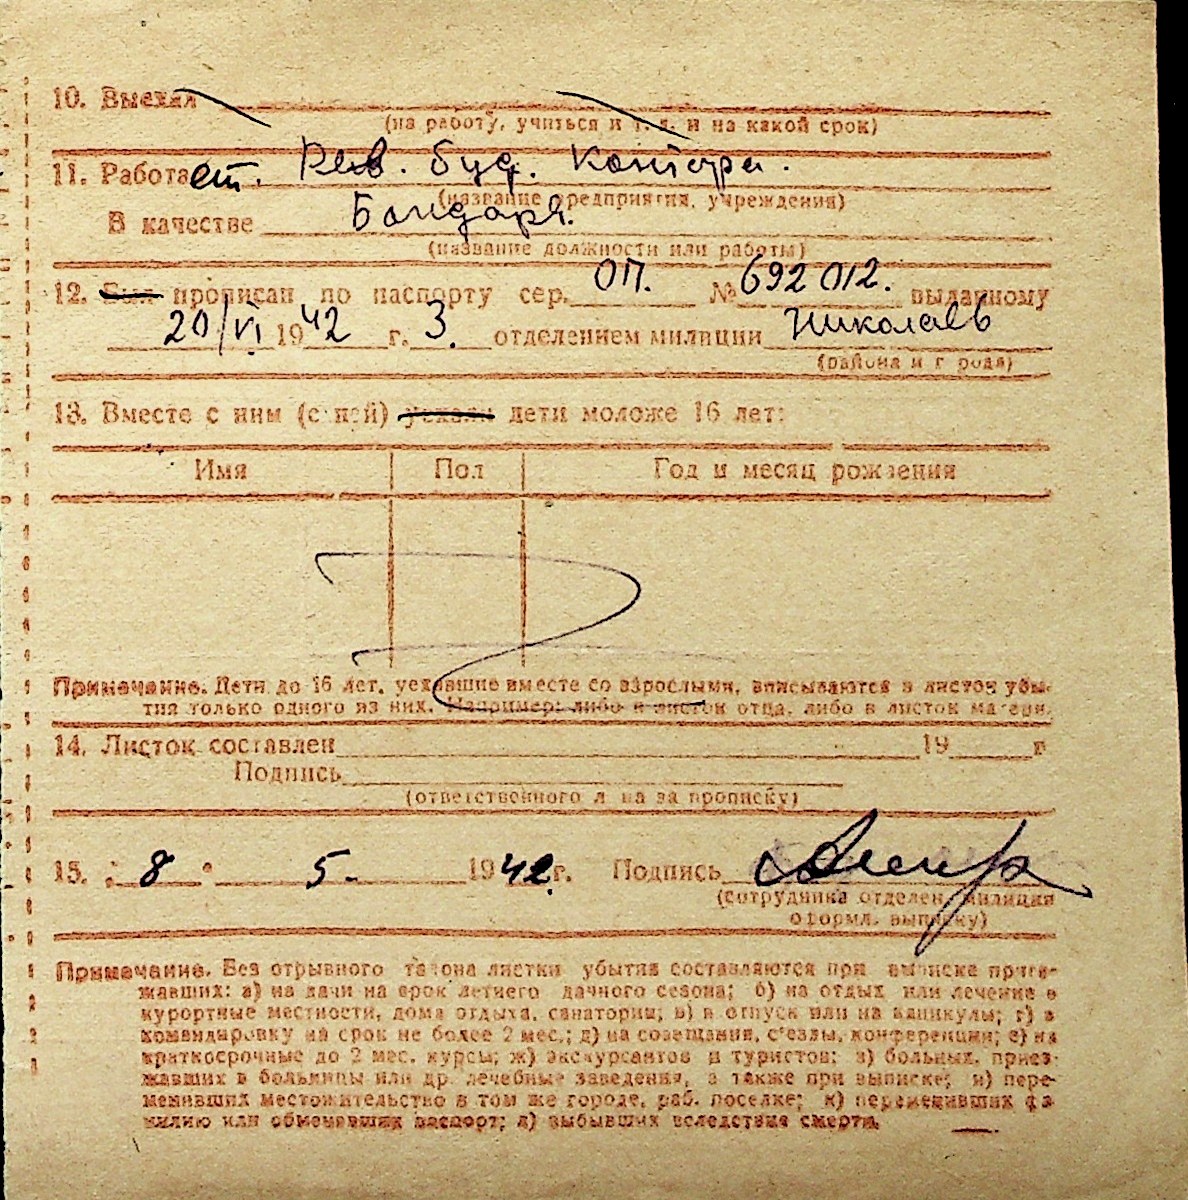 10. Выехал
(на работу, учиться и т. д. и на какой срок)
11. Работает. Рев. буф. контора.
(название предприятия, учреждения)
В качестве Бондаря.
(название должности или работы)
12. Был прописан по паспорту сер. ОП. № 692012. выданному
20/VI 1942 г. 3. отделением милиции Николаев
(района и города)
13. Вместе с ним (с ней) уехали дети моложе 16 лет:
Имя Пол Год и месяц рождения
Примечание. Дети до 16 лет, уехавшие вместе со взрослыми, вписываются в листок убы-
тия только одного из них. Например: либо в листок отца, либо в листок матери.
14. Листок составлен 19 г
Подпись
(ответственного лица за прописку)
15. "8" 5. 1942 г. Подпись
(сотрудника отделен. милиции
оформл. выписку)
Примечание. Без отрывного талона листки убытия составляются при выписке приез-
жавших: а) на дачи на срок летнего дачного сезона; б) на отдых или лечение в
курортные местности, дома отдыха, санатории; в) в отпуск или на каникулы; г) в
командировку на срок не более 2 мес.; д) на совещания, съезды, конференции; е) на
краткосрочные до 2 мес. курсы; ж) экскурсантов и туристов; з) больных, приез-
жавших в больницы или др. лечебные заведения, а также при выписке; и) пере-
менивших местожительство в том же городе, раб. поселке; к) переменивших фа-
милию или обменявших паспорт; л) выбывших вследствие смерти.